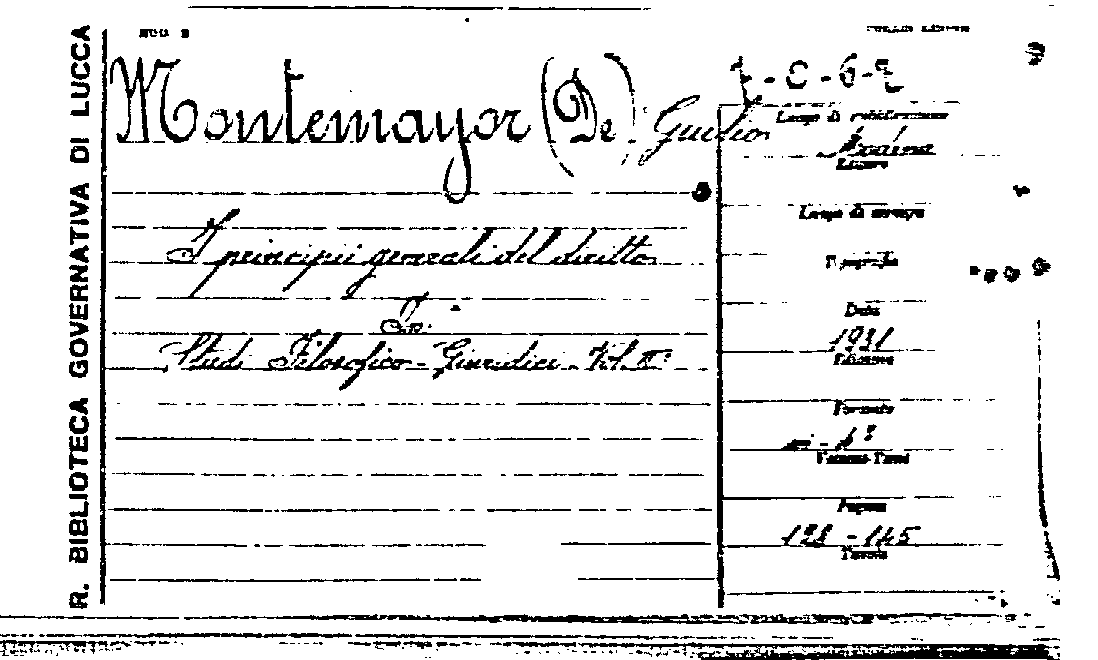 R. BIBLIOTECA GOVERNATIVA DI LUCCA
MOD. 2
Montemayor (De) Giulio
I principii generali del diritto
In:
Studi Filosofico-Giuridici. Vol. II:
Luogo di pubblicazione
Modena
Editore
Luogo di stampa
Tipografia
Data
1931
Edizione
Formato
in-8°
Volume-Tomo
Pagine
Tavole